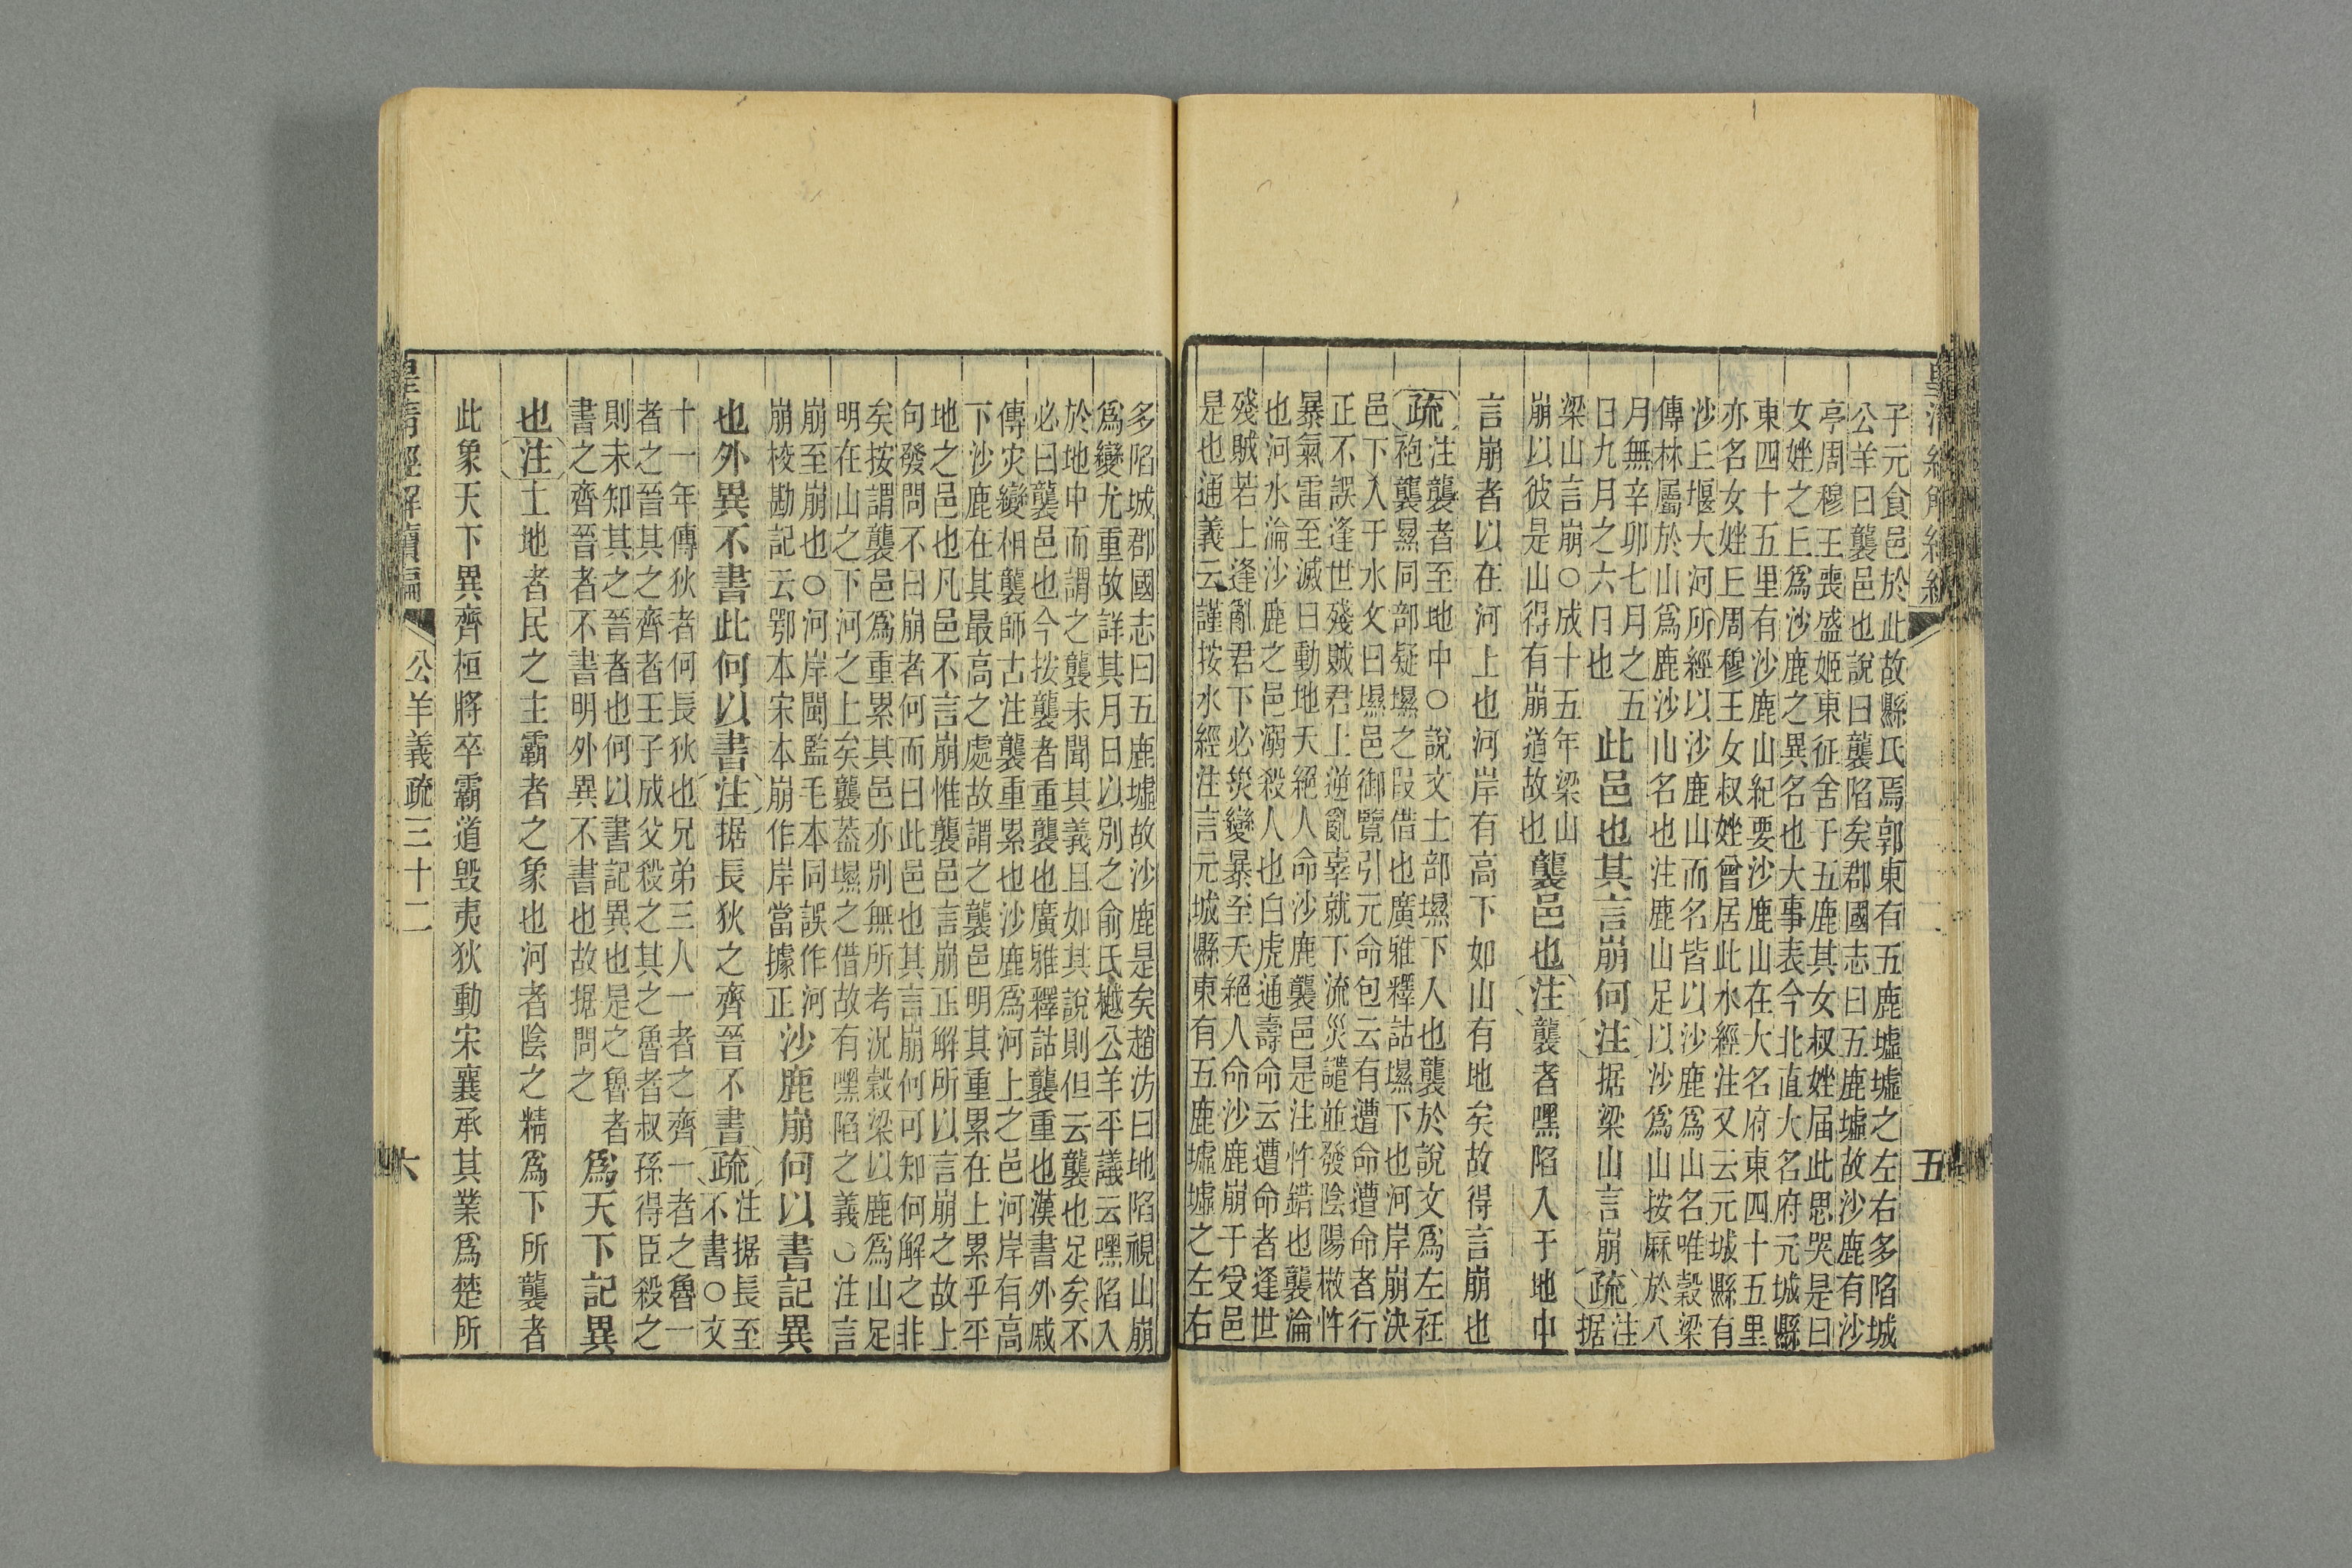 五
子元食邑於此故縣氏焉郭東有五鹿墟墟之左右多陷城
公羊曰襲邑也說曰襲陷矣郡國志曰五鹿墟故沙鹿有沙
亭周穆王喪盛姬東征舍于五鹿其女叔㛗届此思哭是曰
女㛗之丘爲沙鹿之異名也大事表今北直大名府元城縣
東四十五里有沙鹿山紀要沙鹿山在大名府東四十五里
亦名女㛗丘周穆王女叔㛗曾居此水經注又云元城縣有
沙丘堰大河所經以沙鹿山而名皆以沙鹿爲山名唯穀梁
傳林屬於山爲鹿沙山名也注鹿山足以沙爲山按厤於八
月無辛卯七月之五
日九月之六日也
此邑也其言崩何注据梁山言崩疏注
据
梁山言崩○成十五年梁山
崩以彼是山得有崩道故也
襲邑也注襲者嘿陷入于地中
言崩者以在河上也河岸有高下如山有地矣故得言崩也
疏注襲者至地中○說文土部㙷下入也襲於說文爲左衽
袍襲㬎同部疑㙷之叚借也廣雅釋詁㙷下也河岸崩決
邑下入于水文曰㙷邑御覽引元命包云有遭命遭命者行
正不誤逢世殘賊君上逆亂辜就下流災譴並發陰陽散忤
暴氣雷至滅日動地夭絕人命沙鹿襲邑是注忤錯也襲淪
也河水淪沙鹿之邑溺殺人也白虎通壽命云遭命者逢世
殘賊若上逢亂君下必災變暴至夭絕人命沙鹿崩于受邑
是也通義云謹按水經注言元城縣東有五鹿墟墟之左右
多陷城郡國志曰五鹿墟故沙鹿是矣趙汸曰地陷視山崩
爲變尤重故詳其月日以別之俞氏樾公羊平議云嘿陷入
於地中而謂之襲未聞其義且如其說則但云襲也足矣不
必曰襲邑也今按襲者重襲也廣雅釋詁襲重也漢書外戚
傳灾變相襲師古注襲重累也沙鹿爲河上之邑河岸有高
下沙鹿在其最高之處故謂之襲邑明其重累在上累乎平
地之邑也凡邑不言崩惟襲邑言崩正解所以言崩之故上
句發問不曰崩者何而曰此邑也其言崩何可知何解之非
矣按謂襲邑爲重累其邑亦別無所考況穀梁以鹿爲山足
明在山之下河之上矣襲蓋㙷之借故有嘿陷之義○注言
崩至崩也○河岸閩監毛本同誤作河
崩校勘記云鄂本宋本崩作岸當據正
沙鹿崩何以書記異
也外異不書此何以書注据長狄之齊晉不書疏注据長至
不書○文
十一年傳狄者何長狄也兄弟三人一者之齊一者之魯一
者之晉其之齊者王子成父殺之其之魯者叔孫得臣殺之
則未知其之晉者也何以書記異也是之魯者
書之齊晉者不書明外異不書也故据問之
爲天下記異
也注土地者民之主霸者之象也河者陰之精爲下所襲者
此象天下異齊桓將卒霸道毀夷狄動宋襄承其業爲楚所
皇清經解續編
公羊義疏三十二
六